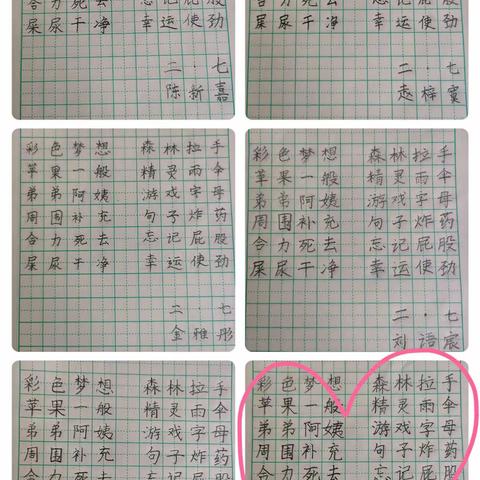 合力死去 忘记屁股
屎尿干净 幸运使劲
二·七
陈新嘉
合力死去 忘记屁股
屎尿干净 幸运使劲
二·七
赵梓
彩色梦想 森林拉手
苹果一般 精灵雨伞
弟弟阿姨 游戏字母
周围补充 句子炸药
合力死去 忘记屁股
屎尿干净 幸运使劲
二·七
金雅彤
彩色梦想 森林拉手
苹果一般 精灵雨伞
弟弟阿姨 游戏字母
周围补充 句子炸药
合力死去 忘记屁股
屎尿干净 幸运使劲
二·七
刘语宸
彩色梦想 森林拉手
苹果一般 精灵雨伞
弟弟阿姨 游戏字母
周围补充 句子炸药
合力死去 忘记屁股
彩色梦想 森林拉手
苹果一般 精灵雨伞
弟弟阿姨 游戏字母
周围补充 句子炸药
合力死去 忘记屁股